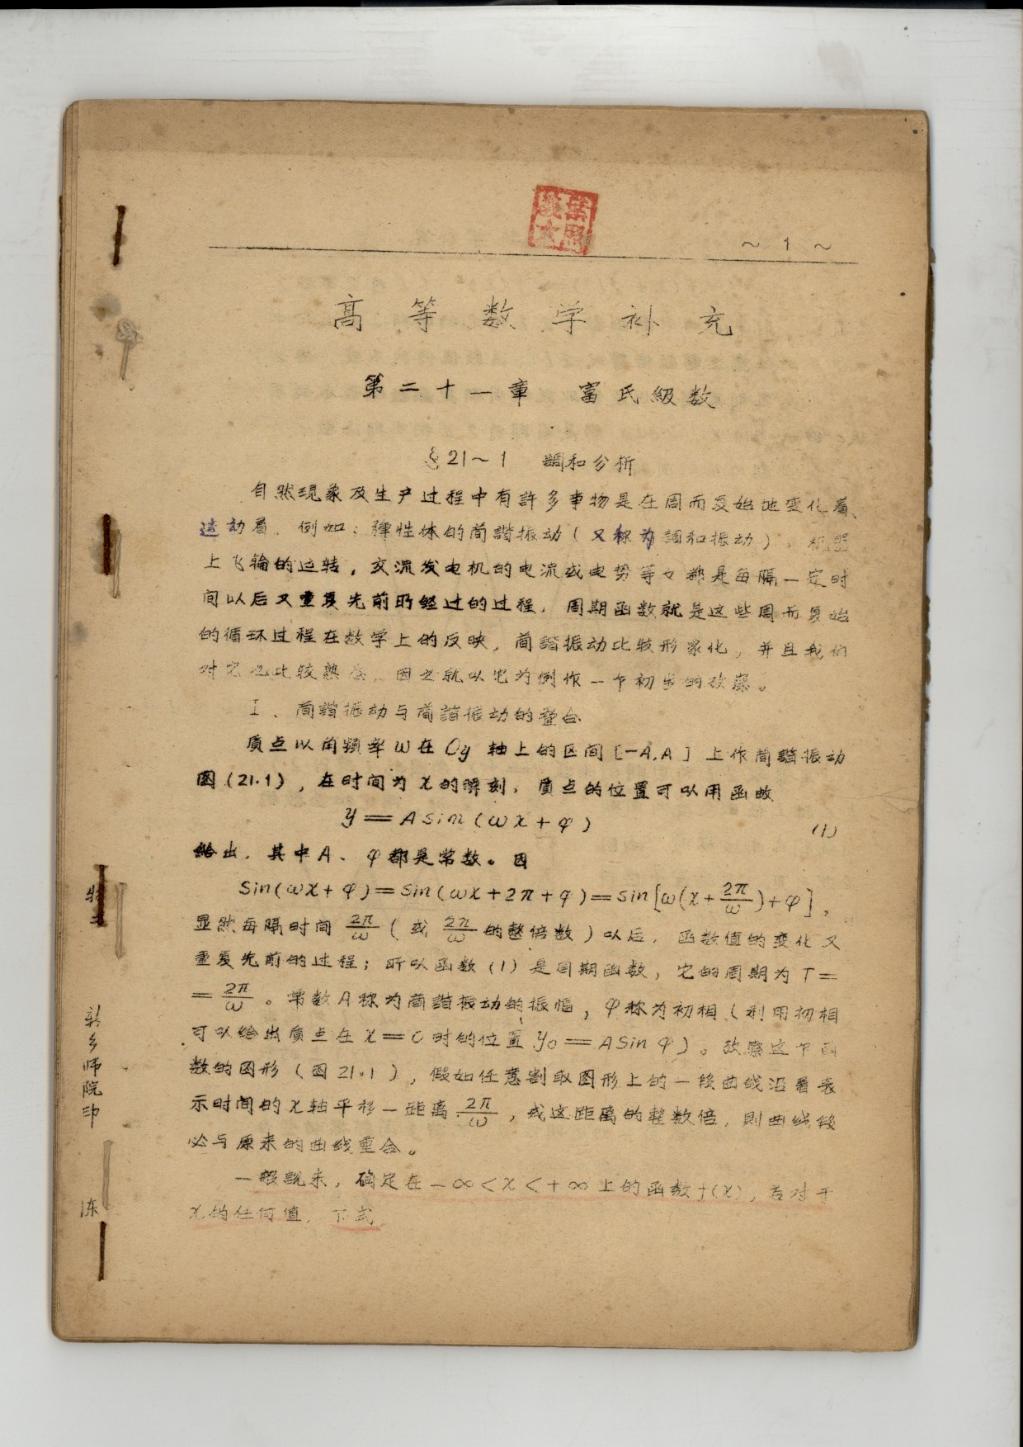 ~ 1 ~
高等数学补充
第二十一章 富氏級数
§21~1 調和分析
自然現象及生产过程中有許多事物是在周而复始地变化着、
运动着．例如：弹性体的简諧振动（又称为調和振动）．机器
上飞輪的运转，交流发电机的电流或电势等々都是每隔一定时
间以后又重复先前所經过的过程．周期函数就是这些周而复始
的循环过程在数学上的反映，简諧振动比較形象化，并且我们
对它也比较熟悉．因之就以它为例作一个初步的故察。
I．简諧振动与简諧振动的叠合
质点以角頻率ω在Oy 轴上的区间［-A,A］上作简諧振动
图(21.1)，在时间为x的瞬刻．质点的位置可以用函数
y＝Asin(ωx+φ) (1)
給出．其中A、φ都是常数。因
Sin(ωx+φ)＝Sin(ωx+2π+φ)＝Sin[ω(x+2π/ω)+φ]，
显然每隔时间 2π/ω（或 2π/ω 的整倍数）以后．函数值的变化又
重复先前的过程；所以函数(1)是周期函数，它的周期为T＝
＝2π/ω。常数A称为简諧振动的振幅，φ称为初相（利用初相
可以给出质点在x＝0时的位置y₀＝ASinφ)。故察这个函
数的图形（图21.1），假如任意割取图形上的一段曲线沿着表
示时间的x轴平移一距离 2π/ω，或这距离的整数倍，則曲线段
必与原来的曲线重合。
一般説来，确定在－∞＜x＜＋∞上的函数f(x)，若对于
x的任何值．下式
物二
新乡师院印
冻